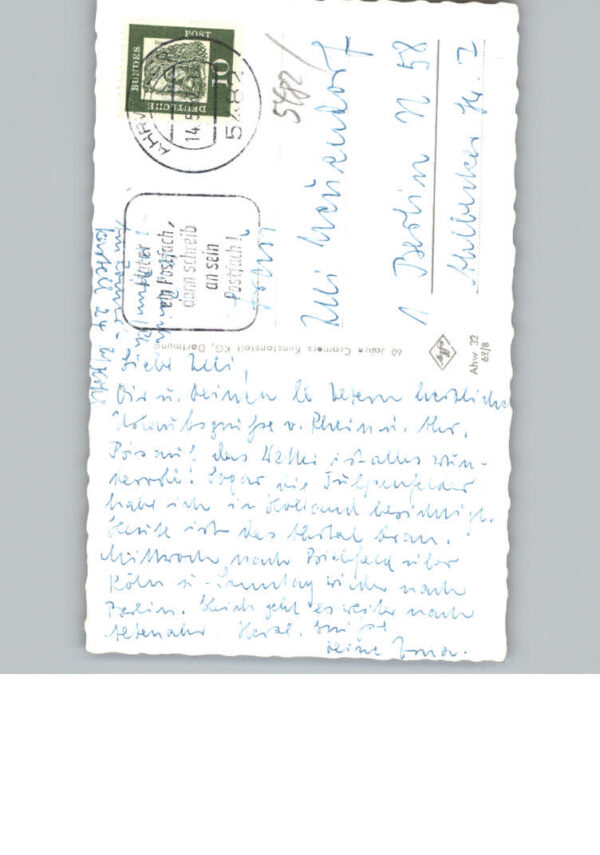 DEUTSCHE
BUNDES
POST
10
AHRW
14.5.
5489
ein Postfach,
dann schreib
an sein
Postfach!
5482
1 Berlin N 58
60 Jahre Cramers Kunstanstalt KG, Dortmund
Ahw. 32
62/8
Liebe
Dir u. Deinen lb. Eltern herzliche
Urlaubsgrüße v. Rhein u. Ahr.
Bis auf das Wetter ist alles wun-
dervoll! Sogar die Tulpenfelder
habe ich in Holland besichtigt.
Heute ist das Ahrtal dran.
Mittwoch nach Bielefeld über
Köln u. Sonntag wieder nach
Berlin. Gleich geht es weiter nach
Altenahr. Herzl. Grüße
Deine Irma.